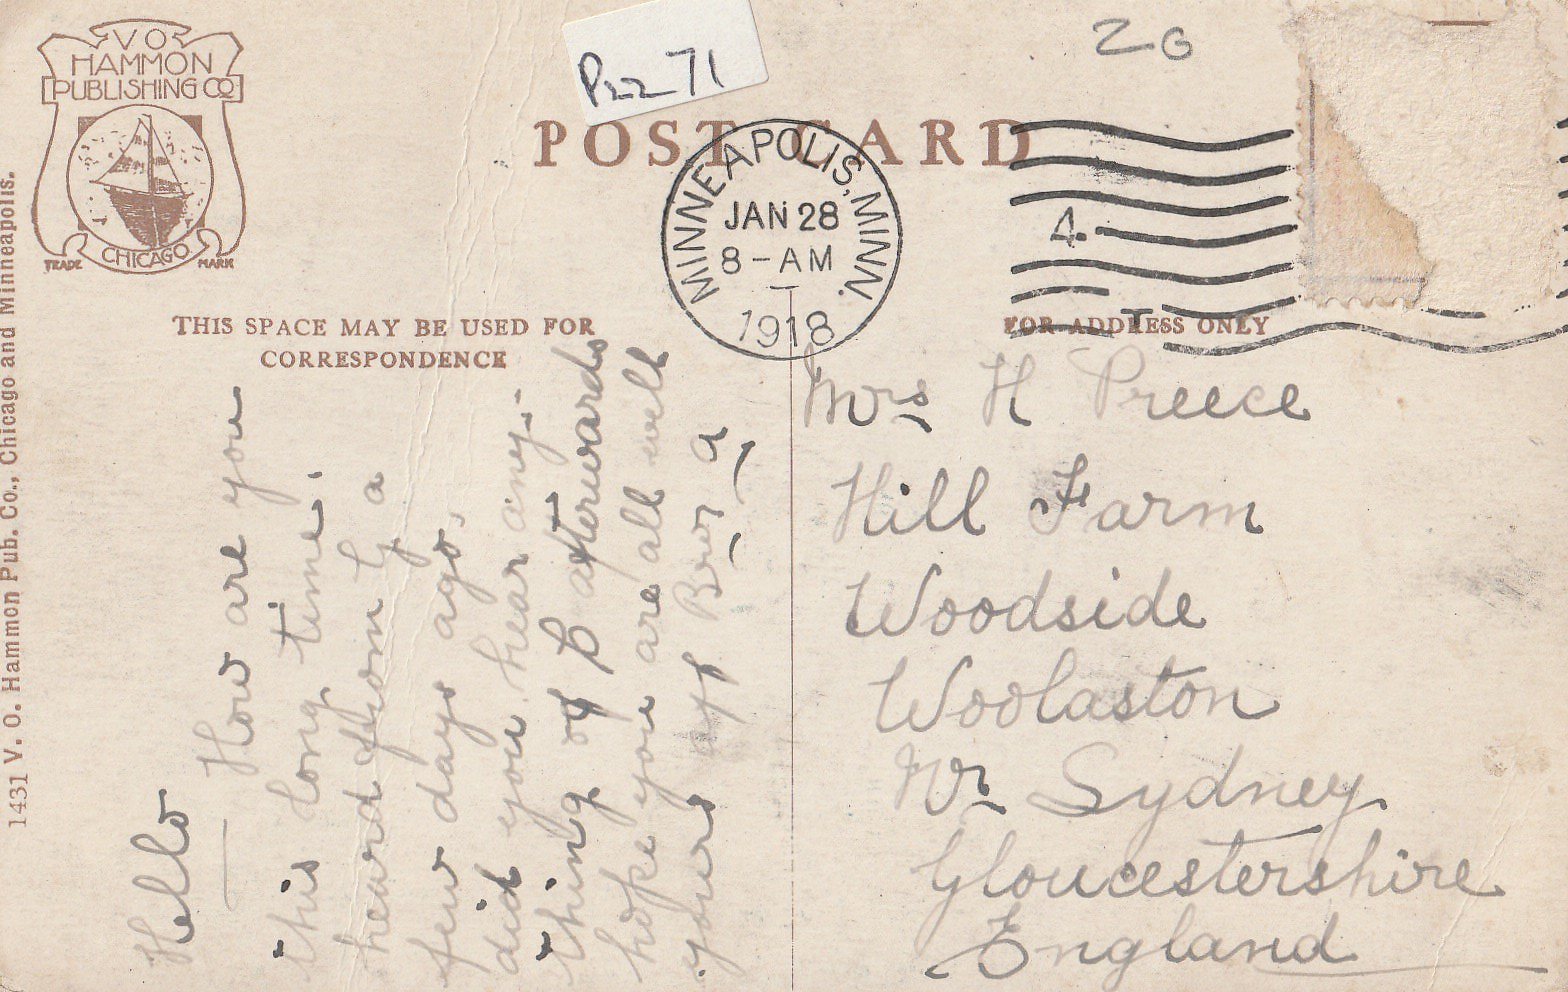 V O
HAMMON
PUBLISHING CO
CHICAGO
TRADE MARK
P22 71
20
POST CARD
MINNEAPOLIS, MINN.
JAN 28
8-AM
1918
4
THIS SPACE MAY BE USED FOR
CORRESPONDENCE
FOR ADDRESS ONLY
1431 V. O. Hammon Pub. Co., Chicago and Minneapolis.
Hello
How are you
this long time.
heard from G a
few days ago,
did you hear any-
thing of B afterwards
hope you are all well
yours aff Bro, A
Mrs H Preece
Hill Farm
Woodside
Woolaston
Nr Sydney
Gloucestershire
England